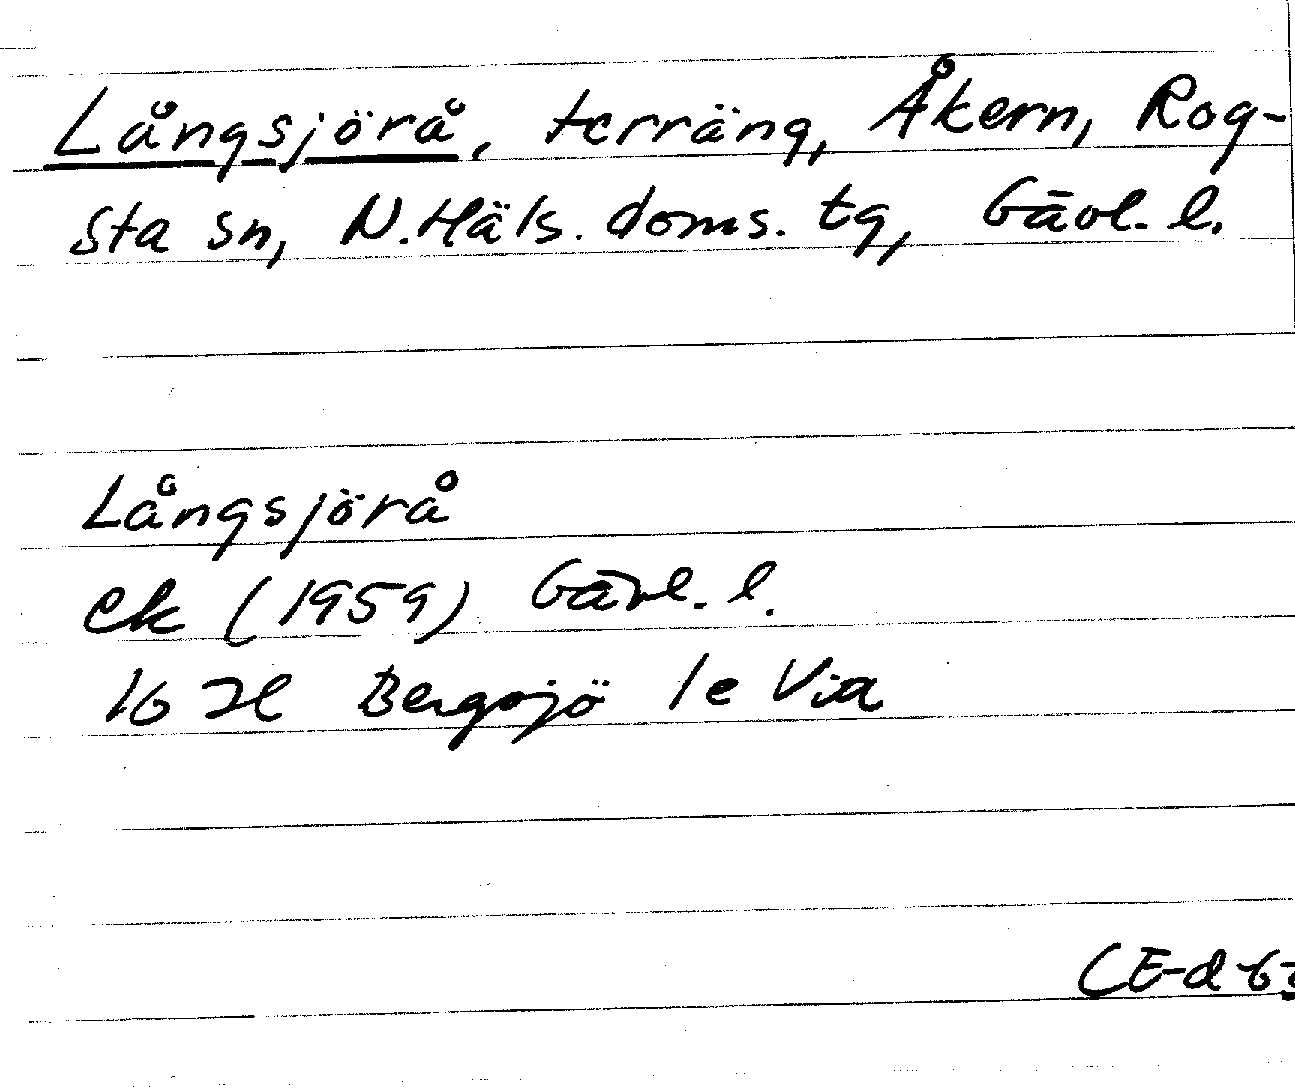 Långsjörå, terräng, Åkern, Rog-
sta sn, N. Häls. doms. tg, Gävl. l.
Långsjörå
ek (1959) Gävl. l.
16 H Bergsjö 1e Via